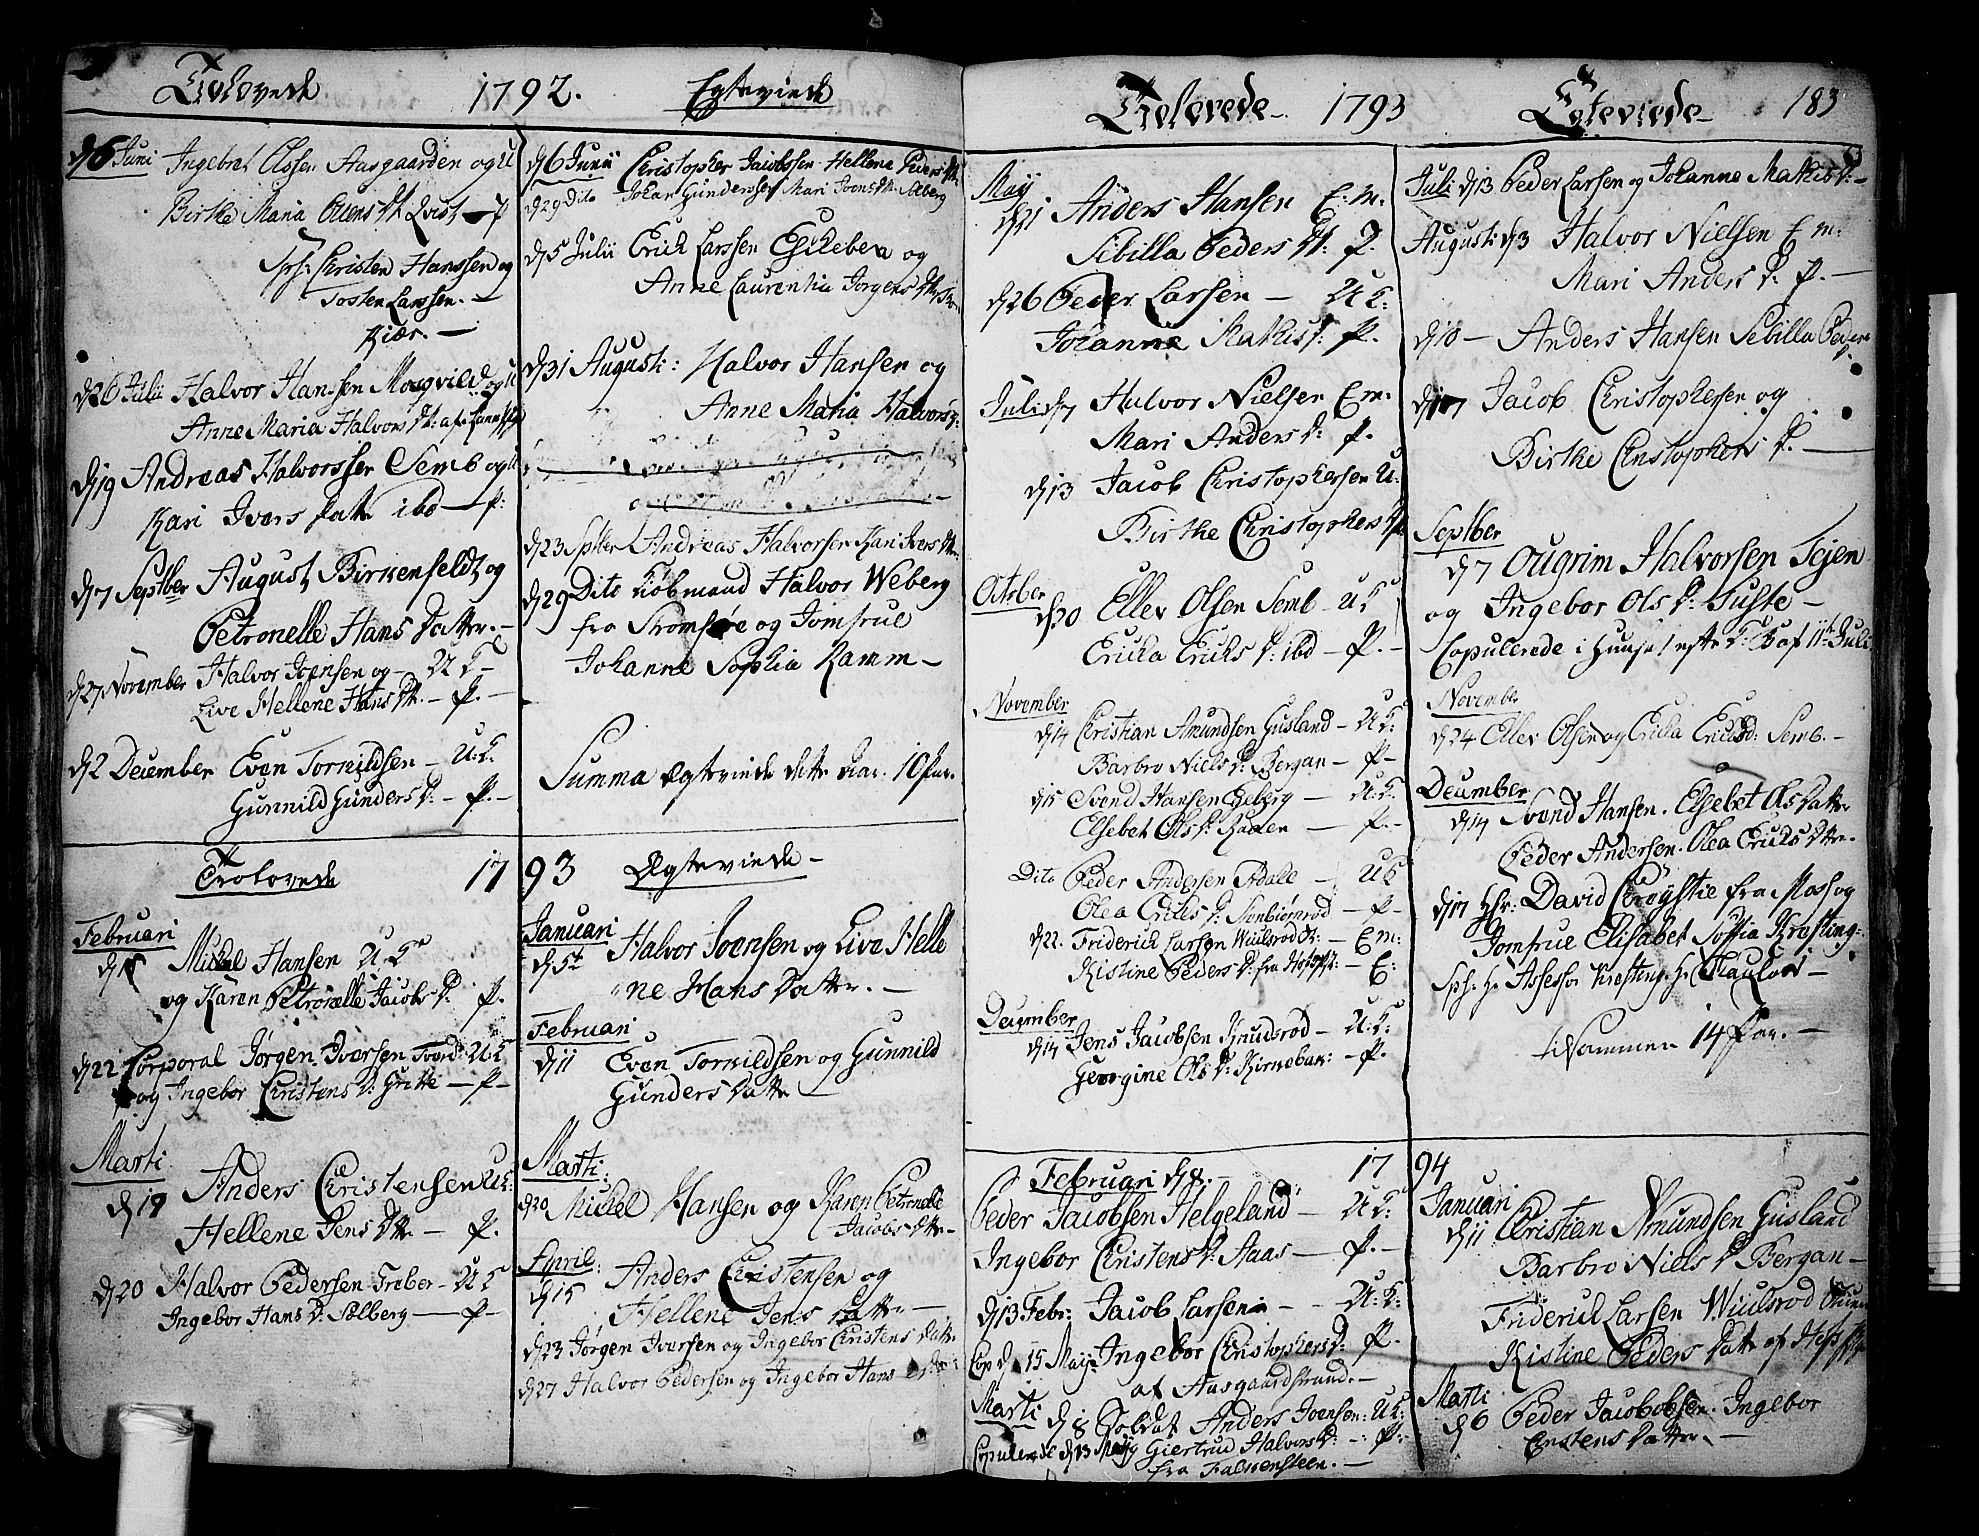 Trolovede 1792. Egteviede
d 6 Juni Ingebret Olssen Aasgaarden og U
Birthe Maria Ollens Dt. Qvist - P
Sph: Christen Hanssen og
Tosten Larssen.
Kiær.
d 26 Julii Halvor Hanssen og U
Anne Maria Halvors Dt: af
d 19 Andreas Halvorssen Semb og U
Kari Ivers Datt ibd - P:
d 7 Septber August Birkenfeldt og
Petronelle Hans Datter. -
d 27 November Halvor Joensen og - U K
Live Hellene Hans Dt. - P. -
d 2 December Even Torkildsen - U: K.
Gunnild Gunders D: - P. -
d 6 Junii Christopher Jacobssen Hellena Peders Dt.
d 29 Dito Johan Gunderssen Mari Joens Dt. Solberg
d 5 Julii Erick Larssen Eskebek og
Anne Laurentia Jørgens Dt.
d 31 Augusti: Halvor Hansen og
Anne Maria Halvors D:
d 23 Sptber Andreas Halvorsen Kari Ivers Dt.
d 29 Dito Kiobmand Halvor Weberg
fra Stromsøe og Jomfrue
Johanne Sophia Ramm -
Summa Ægteviede dette Aar. 10 Par.
Trolovede 1793 Ægteviede -
Februari
d 15 Mickel Hansen U. K
og Karen Petronelle Jacobs D: P.
d 22 Corporal Jørgen Iversen U: K
og Ingebor Christens D: Gritte - P -
Marti
d 19 Anders Christensen U K:
Hellene Jens Dtt. - P.
d 20 Halvor Pedersen Træber - U K
Ingebor Hans D: Solberg - P -
Januari
d 5t Halvor Joensen og Live Helle
"ne Hans Datter. -
Februari
d 11 Even Torkildsen og Gunnild
Gunders Datter -
Marti:
d 20 Mickel Hansen og Karen Petronelle
Jacobs Dtter -
April:
d 15 Anders Christensen og
Hellene Jens Datter -
d 23 Jørgen Iversen og Ingebor Christens Datt.
d 27 Halvor Pedersen og Ingebor Hans
Trolovede 1793 Egteviede 183
May
d 21 Anders Hansen E: m.
Sebilla Peders Dt: P.
d 26 Peder Larsen - U K:
Johanne Mathis D: P.
Juli d 7 Halvor Nielsen E m:
Mari Anders D: P.
d 13 Jacob Christophersen U.
Birthe Christophers D P
October
d 20 Ellev Olsen Semb - U K
Ericka Ericks D: ibd - P. -
November
d 14 Christian Amundsen Gusland - U K
Barbro Niels D: Bergan - P -
d 15 Svend Hansen Egeberg - U K.
Elsebet Ols D: - P -
Dito Peder Andersen Adale - U K
Olea Ericks D: Stenbiørnrød - P -
d 22. Friderick Larsen Wiulsrod - E m:
Kistine Peders D: fra - E:
December
d 14 Jens Jacobsen Knudsrod - U: K:
Georgine Ols D: Kirkebak: - P.
Juli d 13 Peder Larsen og Johanne Mathis D: -
Augusti d 3 Halvor Nielsen E m:
Mari Anders D: P. -
d 10 - Anders Hansen Sebilla Peders
D.
d 17 Jacob Christophersen og
Birthe Christophers D. -
Septber
d 7 Ougrim Halvorsen Tejen
og Ingebor Ols D: Tufte -
Copulerede i Huuset efter K: B af 11te Juli
November
d 24 Ellev Olsen og Ericka Ericks D: Semb. -
December
d 14 Svend Hansen. Elsebet Ols Datter
Peder Andersen. Olea Ericks Dtter.
d 17 Hr: David Chrystie fra Moss og
Jomfrue Elisabet Soffia Krefting.
Sph: Hr Assessor Krefting. Hr Thaulow -
tilsammen 14 Par. -
Februari d 8. - 1794
Peder Jacobsen Helgeland - U K:
Ingebor Christens D: Aaas - P. -
d 13 Febr: Jacob Larsen - - U: K:
Cop d. 15 Maji Ingebor Christophers D: P.
af Aasgaardstrand. -
Marti d 8 Soldat Anders Joensen: U K:
Copulerede d 13 Maij Giertrud Halvors D: - P: -
fra Falkensteen. -
Januari
d 11 Christian Amundsen Gusland
Barbro Niels D Bergan -
Friderick Larsen Wiulsrod
Kistine Peders Datter af
Marti
d 6 Peder Jacobobsen. Ingebor
Christens Datter. -